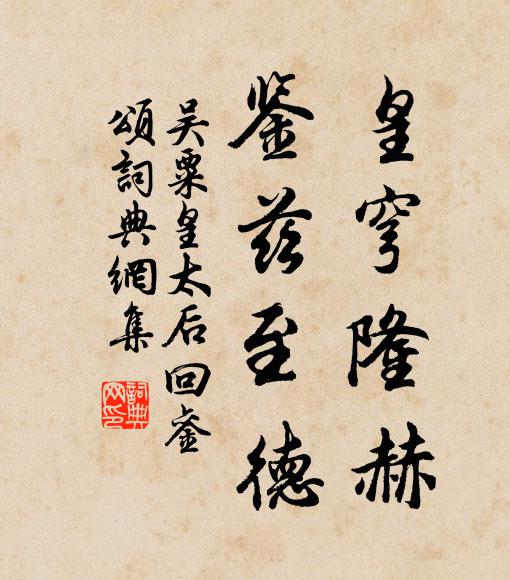 皇穹隆赫
鉴兹至德
吴栗皇太后回銮
颂词典網集
詞典网印